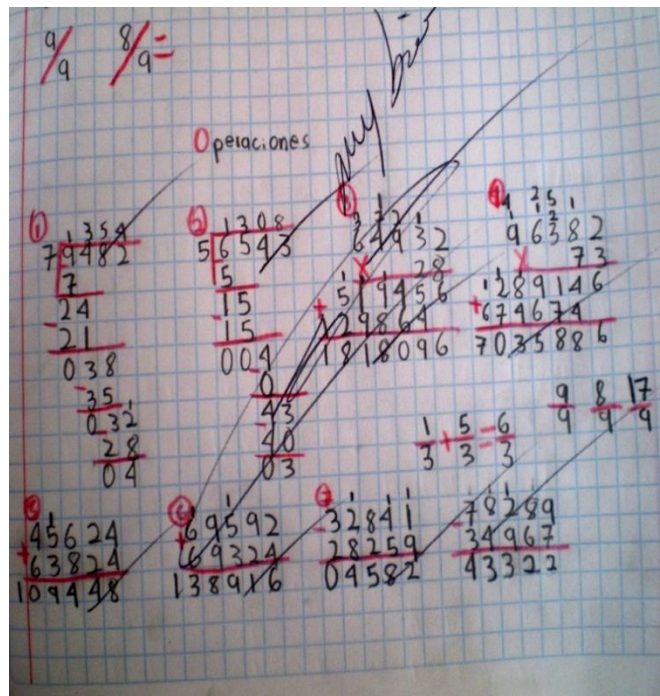 9/9 8/9 =
muy bien
Operaciones
1
1354
7 9482
7
24
- 21
038
- 35
0 32
28
04
2
1308
5 6543
5
15
- 15
004
0
43
- 40
03
3
64932
x 28
519456
+ 129864
1818096
4
96382
x 73
289146
+ 674674
7035886
1/3 + 5/3 = 6/3
9/9 8/9 17/9
5
45624
+ 63824
109448
6
69592
+ 69324
138916
7
- 32841
28259
04582
- 78289
34967
43322